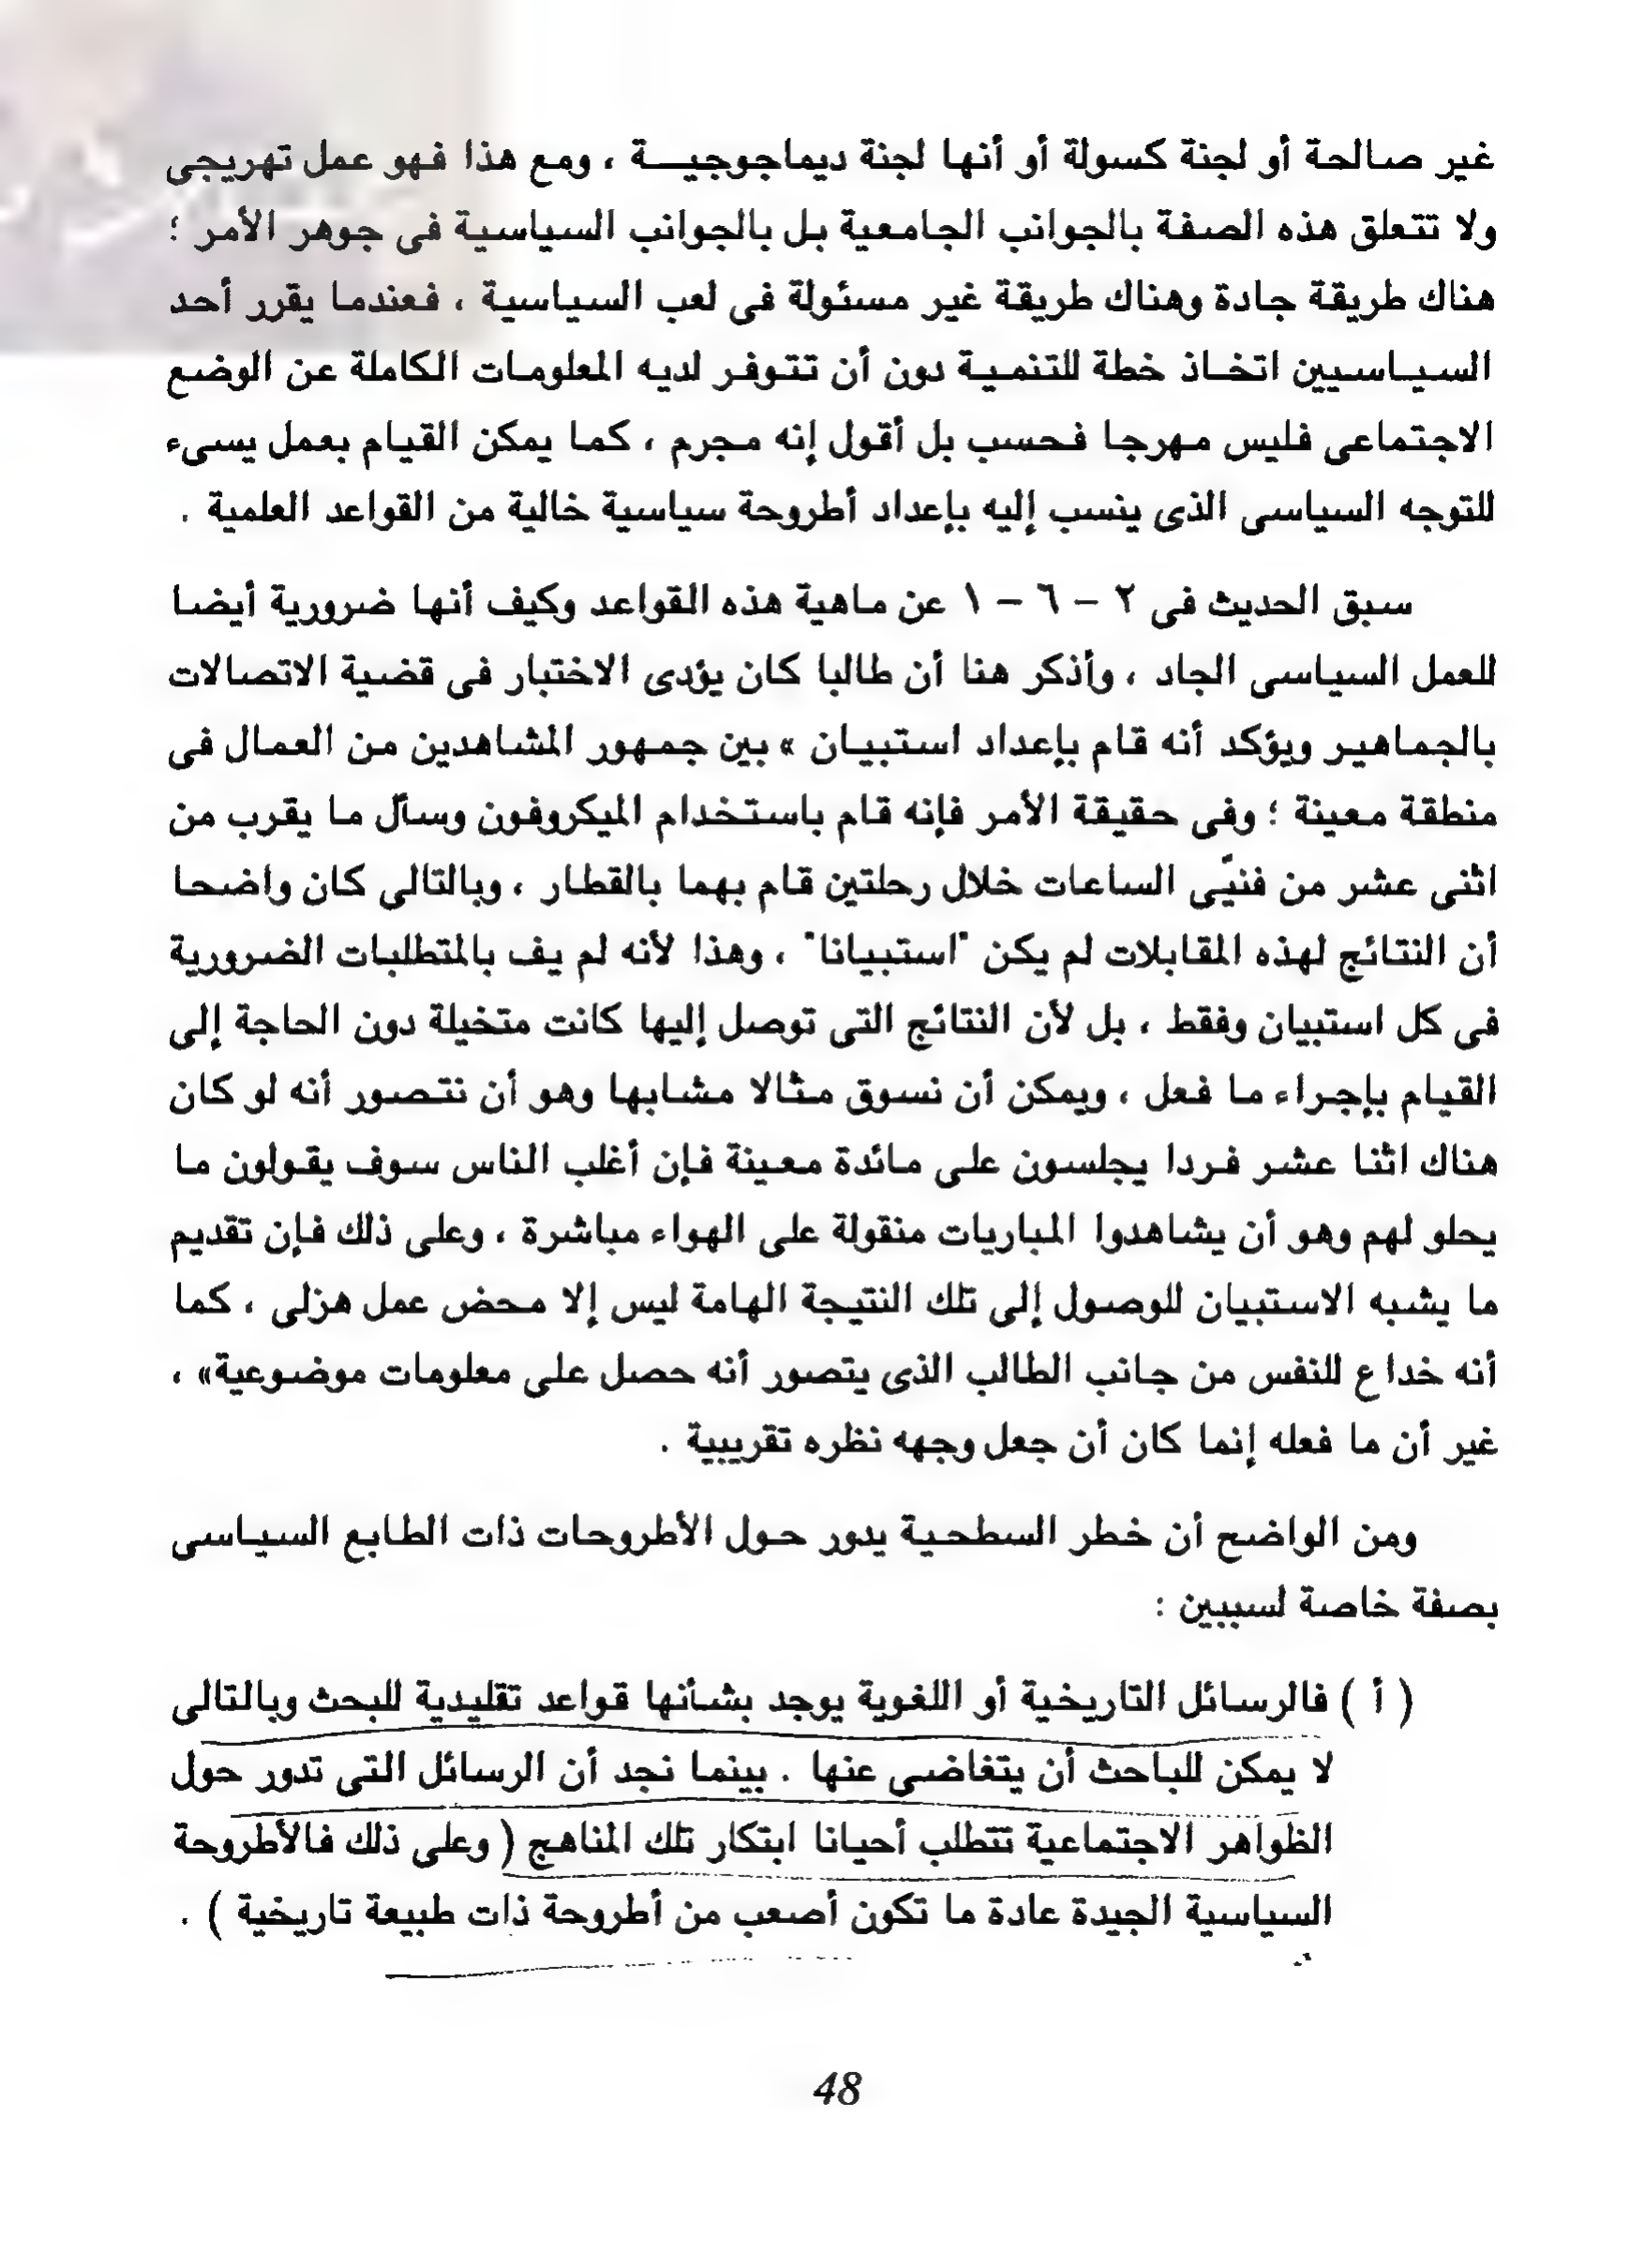 غير صالحة أو لجنة كسولة أو أنها لجنة ديماجوجيـــة ، ومع هذا فهو عمل تهريجى
ولا تتعلق هذه الصفة بالجوانب الجامعية بل بالجوانب السياسية فى جوهر الأمر ؛
هناك طريقة جادة وهناك طريقة غير مسئولة فى لعب السياسية ، فعندما يقرر أحد
السياسيين اتخاذ خطة للتنمية دون أن تتوفر لديه المعلومات الكاملة عن الوضع
الاجتماعى فليس مهرجا فحسب بل أقول إنه مجرم ، كما يمكن القيام بعمل يسىء
للتوجه السياسى الذى ينسب إليه بإعداد أطروحة سياسية خالية من القواعد العلمية .
سبق الحديث فى ٢ – ٦ – ١ عن ماهية هذه القواعد وكيف أنها ضرورية أيضا
للعمل السياسى الجاد ، وأذكر هنا أن طالبا كان يؤدى الاختبار فى قضية الاتصالات
بالجماهير ويؤكد أنه قام بإعداد استبيان » بين جمهور المشاهدين من العمال فى
منطقة معينة ؛ وفى حقيقة الأمر فإنه قام باستخدام الميكروفون وسأل ما يقرب من
اثنى عشر من فنيّى الساعات خلال رحلتين قام بهما بالقطار ، وبالتالى كان واضحا
أن النتائج لهذه المقابلات لم يكن "استبيانا" ، وهذا لأنه لم يف بالمتطلبات الضرورية
فى كل استبيان وفقط ، بل لأن النتائج التى توصل إليها كانت متخيلة دون الحاجة إلى
القيام بإجراء ما فعل ، ويمكن أن نسوق مثالا مشابها وهو أن نتصور أنه لو كان
هناك اثنا عشر فردا يجلسون على مائدة معينة فإن أغلب الناس سوف يقولون ما
يحلو لهم وهو أن يشاهدوا المباريات منقولة على الهواء مباشرة ، وعلى ذلك فإن تقديم
ما يشبه الاستبيان للوصول إلى تلك النتيجة الهامة ليس إلا محض عمل هزلى ، كما
أنه خداع للنفس من جانب الطالب الذى يتصور أنه حصل على معلومات موضوعية» ،
غير أن ما فعله إنما كان أن جعل وجهه نظره تقريبية .
ومن الواضح أن خطر السطحية يدور حول الأطروحات ذات الطابع السياسى
بصفة خاصة لسببين :
( أ ) فالرسائل التاريخية أو اللغوية يوجد بشأنها قواعد تقليدية للبحث وبالتالى
لا يمكن للباحث أن يتغاضى عنها . بينما نجد أن الرسائل التى تدور حول
الظواهر الاجتماعية تتطلب أحيانا ابتكار تلك المناهج ( وعلى ذلك فالأطروحة
السياسية الجيدة عادة ما تكون أصعب من أطروحة ذات طبيعة تاريخية ) .
48